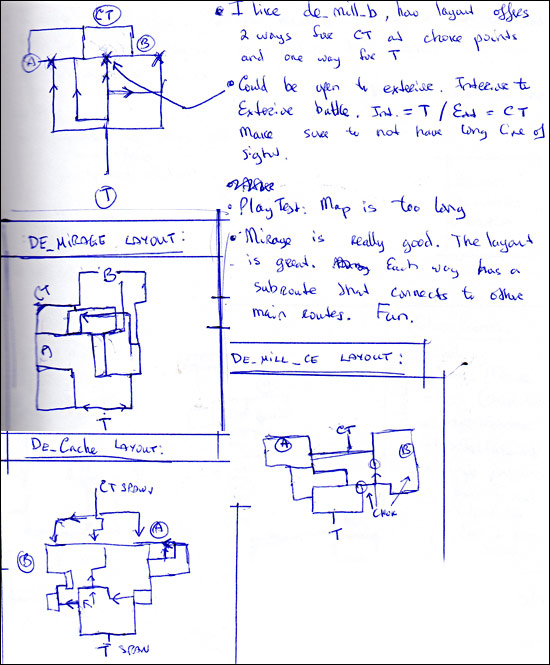 CT
B
A
T
• I like de_mill_b, how layout offers
2 ways for CT at choke points
and one way for T
• Could be open to exterior. Interior to
Exterior battle. Int. = T / Ext = CT
Make sure to not have long line of
sight.
• PlayTest: Map is too long
• Mirage is really good. The layout
is great. Each way has a
subroute that connects to other
main routes. Fun.
DE_MIRAGE LAYOUT:
B
CT
A
T
DE_MILL_CE LAYOUT:
A
CT
B
CHOK
T
DE_Cache LAYOUT:
CT SPAWN
A
B
T SPAWN